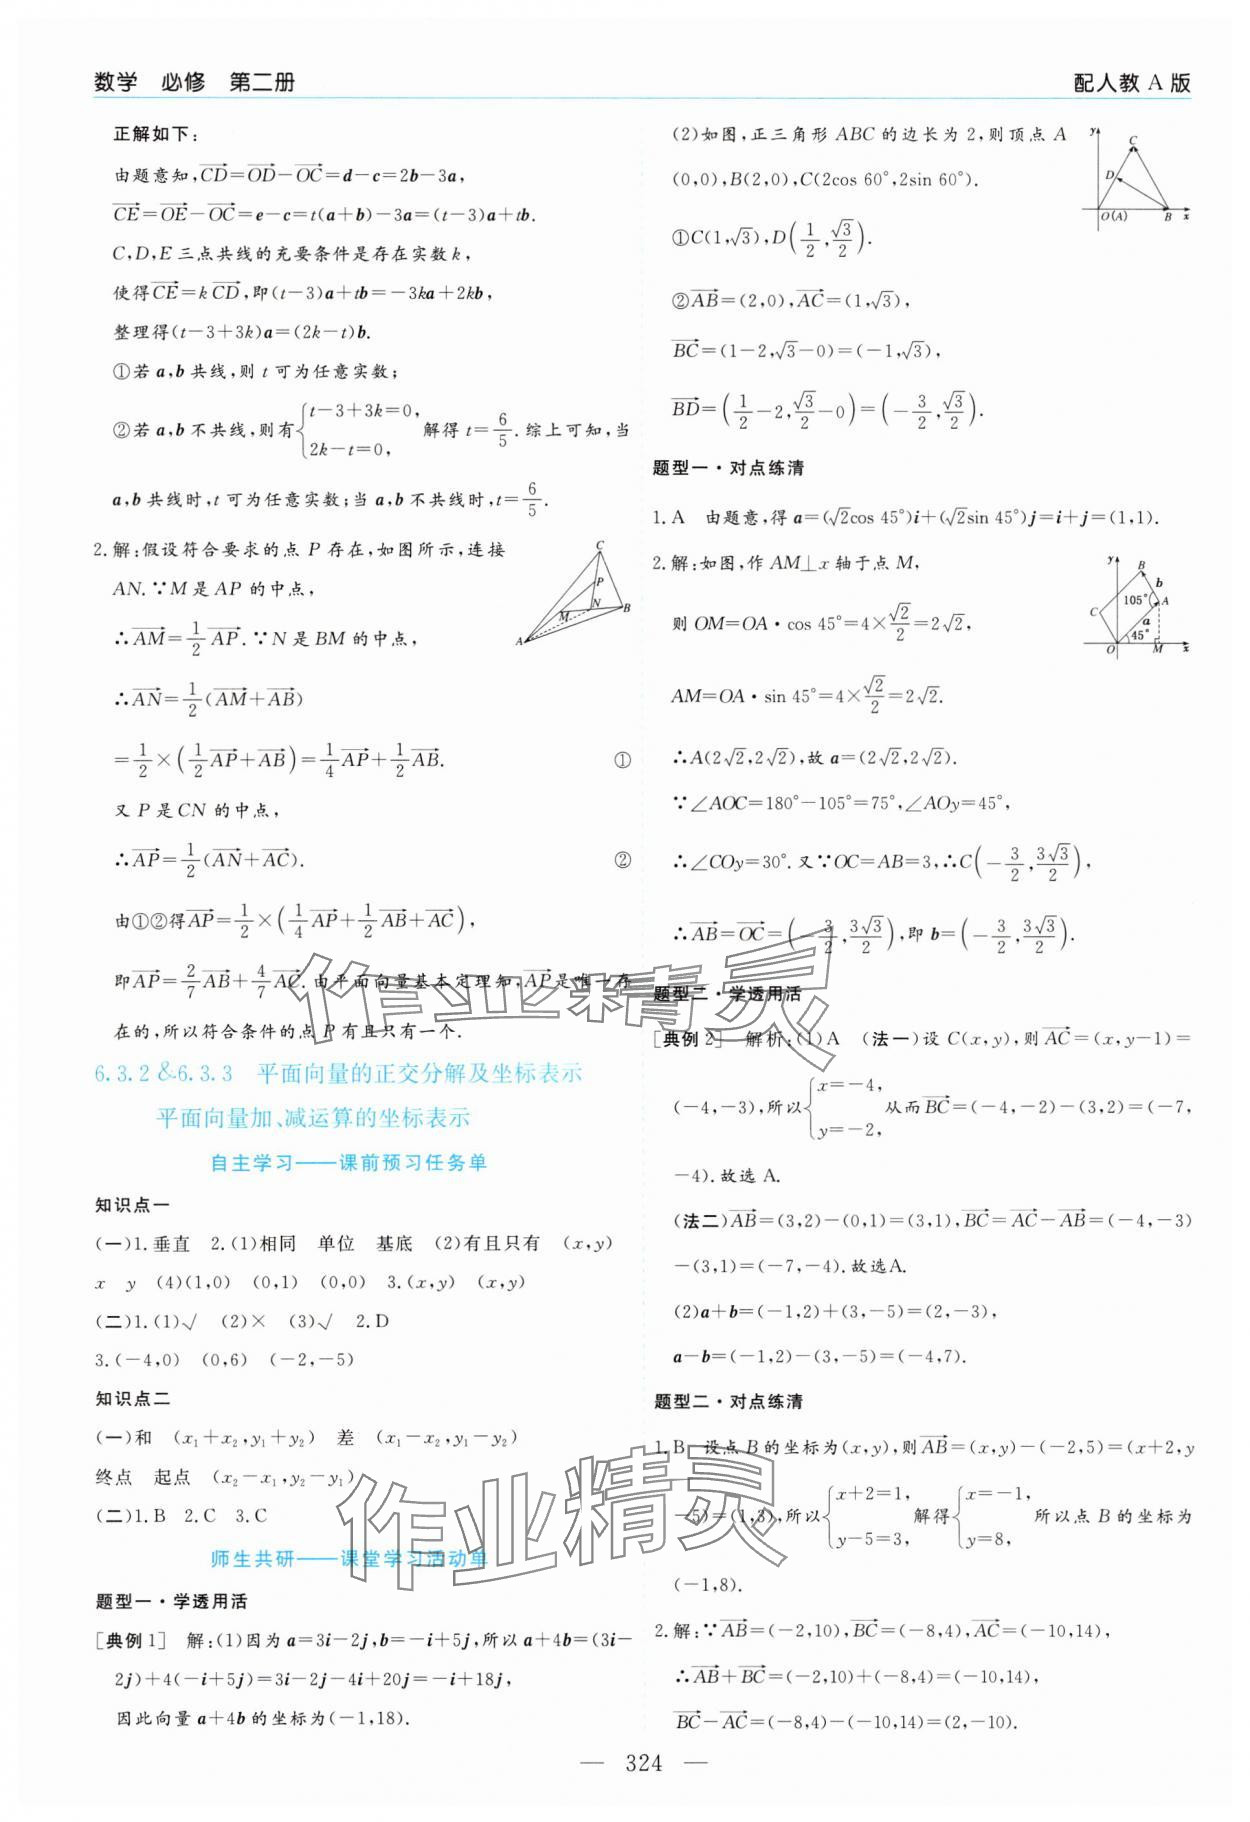 数学 必修 第二册
配人教 A 版
正解如下:
由题意知,$\overrightarrow{CD}=\overrightarrow{OD}-\overrightarrow{OC}=d-c=2b-3a$,
$\overrightarrow{CE}=\overrightarrow{OE}-\overrightarrow{OC}=e-c=t(a+b)-3a=(t-3)a+tb$.
C,D,E 三点共线的充要条件是存在实数 k,
使得$\overrightarrow{CE}=k\overrightarrow{CD}$,即(t-3)a+tb=-3ka+2kb,
整理得(t-3+3k)a=(2k-t)b.
①若 a,b 共线,则 t 可为任意实数;
②若 a,b 不共线,则有$\begin{cases}t-3+3k=0,\\2k-t=0,\end{cases}$解得 $t=\frac{6}{5}$.综上可知,当
a,b 共线时,t 可为任意实数;当 a,b 不共线时,$t=\frac{6}{5}$.
2.解:假设符合要求的点 P 存在,如图所示,连接
AN.∵M 是 AP 的中点,
∴$\overrightarrow{AM}=\frac{1}{2}\overrightarrow{AP}$.∵N 是 BM 的中点,
C
P
M
N
B
A
∴$\overrightarrow{AN}=\frac{1}{2}(\overrightarrow{AM}+\overrightarrow{AB})$
$=\frac{1}{2}×\left(\frac{1}{2}\overrightarrow{AP}+\overrightarrow{AB}\right)=\frac{1}{4}\overrightarrow{AP}+\frac{1}{2}\overrightarrow{AB}$. ①
又 P 是 CN 的中点,
∴$\overrightarrow{AP}=\frac{1}{2}(\overrightarrow{AN}+\overrightarrow{AC})$. ②
由①②得$\overrightarrow{AP}=\frac{1}{2}×\left(\frac{1}{4}\overrightarrow{AP}+\frac{1}{2}\overrightarrow{AB}+\overrightarrow{AC}\right)$,
即$\overrightarrow{AP}=\frac{2}{7}\overrightarrow{AB}+\frac{4}{7}\overrightarrow{AC}$.由平面向量基本定理知,$\overrightarrow{AP}$是唯一存
在的,所以符合条件的点 P 有且只有一个.
6.3.2&6.3.3 平面向量的正交分解及坐标表示
平面向量加、减运算的坐标表示
自主学习——课前预习任务单
知识点一
(一)1.垂直 2.(1)相同 单位 基底 (2)有且只有 (x,y)
x y (4)(1,0) (0,1) (0,0) 3.(x,y) (x,y)
(二)1.(1)√ (2)× (3)√ 2.D
3.(-4,0) (0,6) (-2,-5)
知识点二
(一)和 $(x_1+x_2,y_1+y_2)$ 差 $(x_1-x_2,y_1-y_2)$
终点 起点 $(x_2-x_1,y_2-y_1)$
(二)1.B 2.C 3.C
师生共研——课堂学习活动单
题型一·学透用活
[典例1] 解:(1)因为 a=3i-2j,b=-i+5j,所以 a+4b=(3i-
2j)+4(-i+5j)=3i-2j-4i+20j=-i+18j,
因此向量 a+4b 的坐标为(-1,18).
(2)如图,正三角形 ABC 的边长为 2,则顶点 A
(0,0),B(2,0),C(2cos 60°,2sin 60°).
y
C
D
O(A)
B
x
①$C(1,\sqrt{3}),D\left(\frac{1}{2},\frac{\sqrt{3}}{2}\right)$.
②$\overrightarrow{AB}=(2,0),\overrightarrow{AC}=(1,\sqrt{3})$,
$\overrightarrow{BC}=(1-2,\sqrt{3}-0)=(-1,\sqrt{3})$,
$\overrightarrow{BD}=\left(\frac{1}{2}-2,\frac{\sqrt{3}}{2}-0\right)=\left(-\frac{3}{2},\frac{\sqrt{3}}{2}\right)$.
题型一·对点练清
1.A 由题意,得 $a=(\sqrt{2}\cos 45°)i+(\sqrt{2}\sin 45°)j=i+j=(1,1)$.
2.解:如图,作 AM⊥x 轴于点 M,
则 $OM=OA·\cos 45°=4×\frac{\sqrt{2}}{2}=2\sqrt{2}$,
y
B
b
105°
A
C
a
45°
O
M
x
$AM=OA·\sin 45°=4×\frac{\sqrt{2}}{2}=2\sqrt{2}$.
∴$A(2\sqrt{2},2\sqrt{2})$,故 $a=(2\sqrt{2},2\sqrt{2})$.
∵∠AOC=180°-105°=75°,∠AOy=45°,
∴∠COy=30°.又∵OC=AB=3,∴$C\left(-\frac{3}{2},\frac{3\sqrt{3}}{2}\right)$,
∴$\overrightarrow{AB}=\overrightarrow{OC}=\left(-\frac{3}{2},\frac{3\sqrt{3}}{2}\right)$,即 $b=\left(-\frac{3}{2},\frac{3\sqrt{3}}{2}\right)$.
题型二·学透用活
[典例2] 解析:(1)A (法一)设 C(x,y),则$\overrightarrow{AC}$=(x,y-1)=
(-4,-3),所以$\begin{cases}x=-4,\\y=-2,\end{cases}$从而$\overrightarrow{BC}$=(-4,-2)-(3,2)=(-7,
-4).故选 A.
(法二)$\overrightarrow{AB}$=(3,2)-(0,1)=(3,1),$\overrightarrow{BC}=\overrightarrow{AC}-\overrightarrow{AB}$=(-4,-3)
-(3,1)=(-7,-4).故选A.
(2)a+b=(-1,2)+(3,-5)=(2,-3),
a-b=(-1,2)-(3,-5)=(-4,7).
题型二·对点练清
1.B 设点 B 的坐标为(x,y),则$\overrightarrow{AB}$=(x,y)-(-2,5)=(x+2,y
-5)=(1,3),所以$\begin{cases}x+2=1,\\y-5=3,\end{cases}$解得$\begin{cases}x=-1,\\y=8,\end{cases}$所以点 B 的坐标为
(-1,8).
2.解:∵$\overrightarrow{AB}$=(-2,10),$\overrightarrow{BC}$=(-8,4),$\overrightarrow{AC}$=(-10,14),
∴$\overrightarrow{AB}+\overrightarrow{BC}$=(-2,10)+(-8,4)=(-10,14),
$\overrightarrow{BC}-\overrightarrow{AC}$=(-8,4)-(-10,14)=(2,-10).
作业精灵
作业精灵
— 324 —